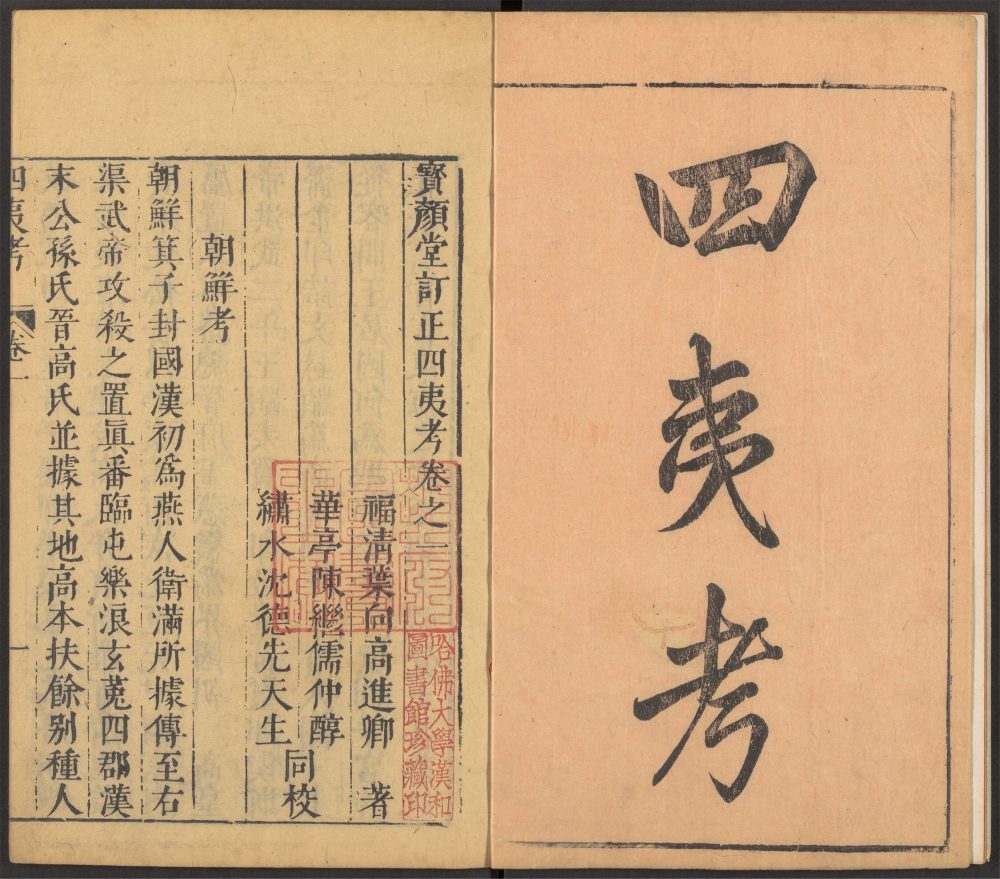 四夷考
寶顏堂訂正四夷考卷之一
福清葉向高進卿著
華亭陳繼儒仲醇
繡水沈德先天生同校
朝鮮考
朝鮮箕子封國漢初為燕人衛滿所據傳至右
渠武帝攻殺之置眞番臨屯樂浪玄菟四郡漢
末公孫氏晉高氏並據其地高本扶餘别種人
四夷考 卷一 一
哈佛大學漢和
圖書館珍藏印